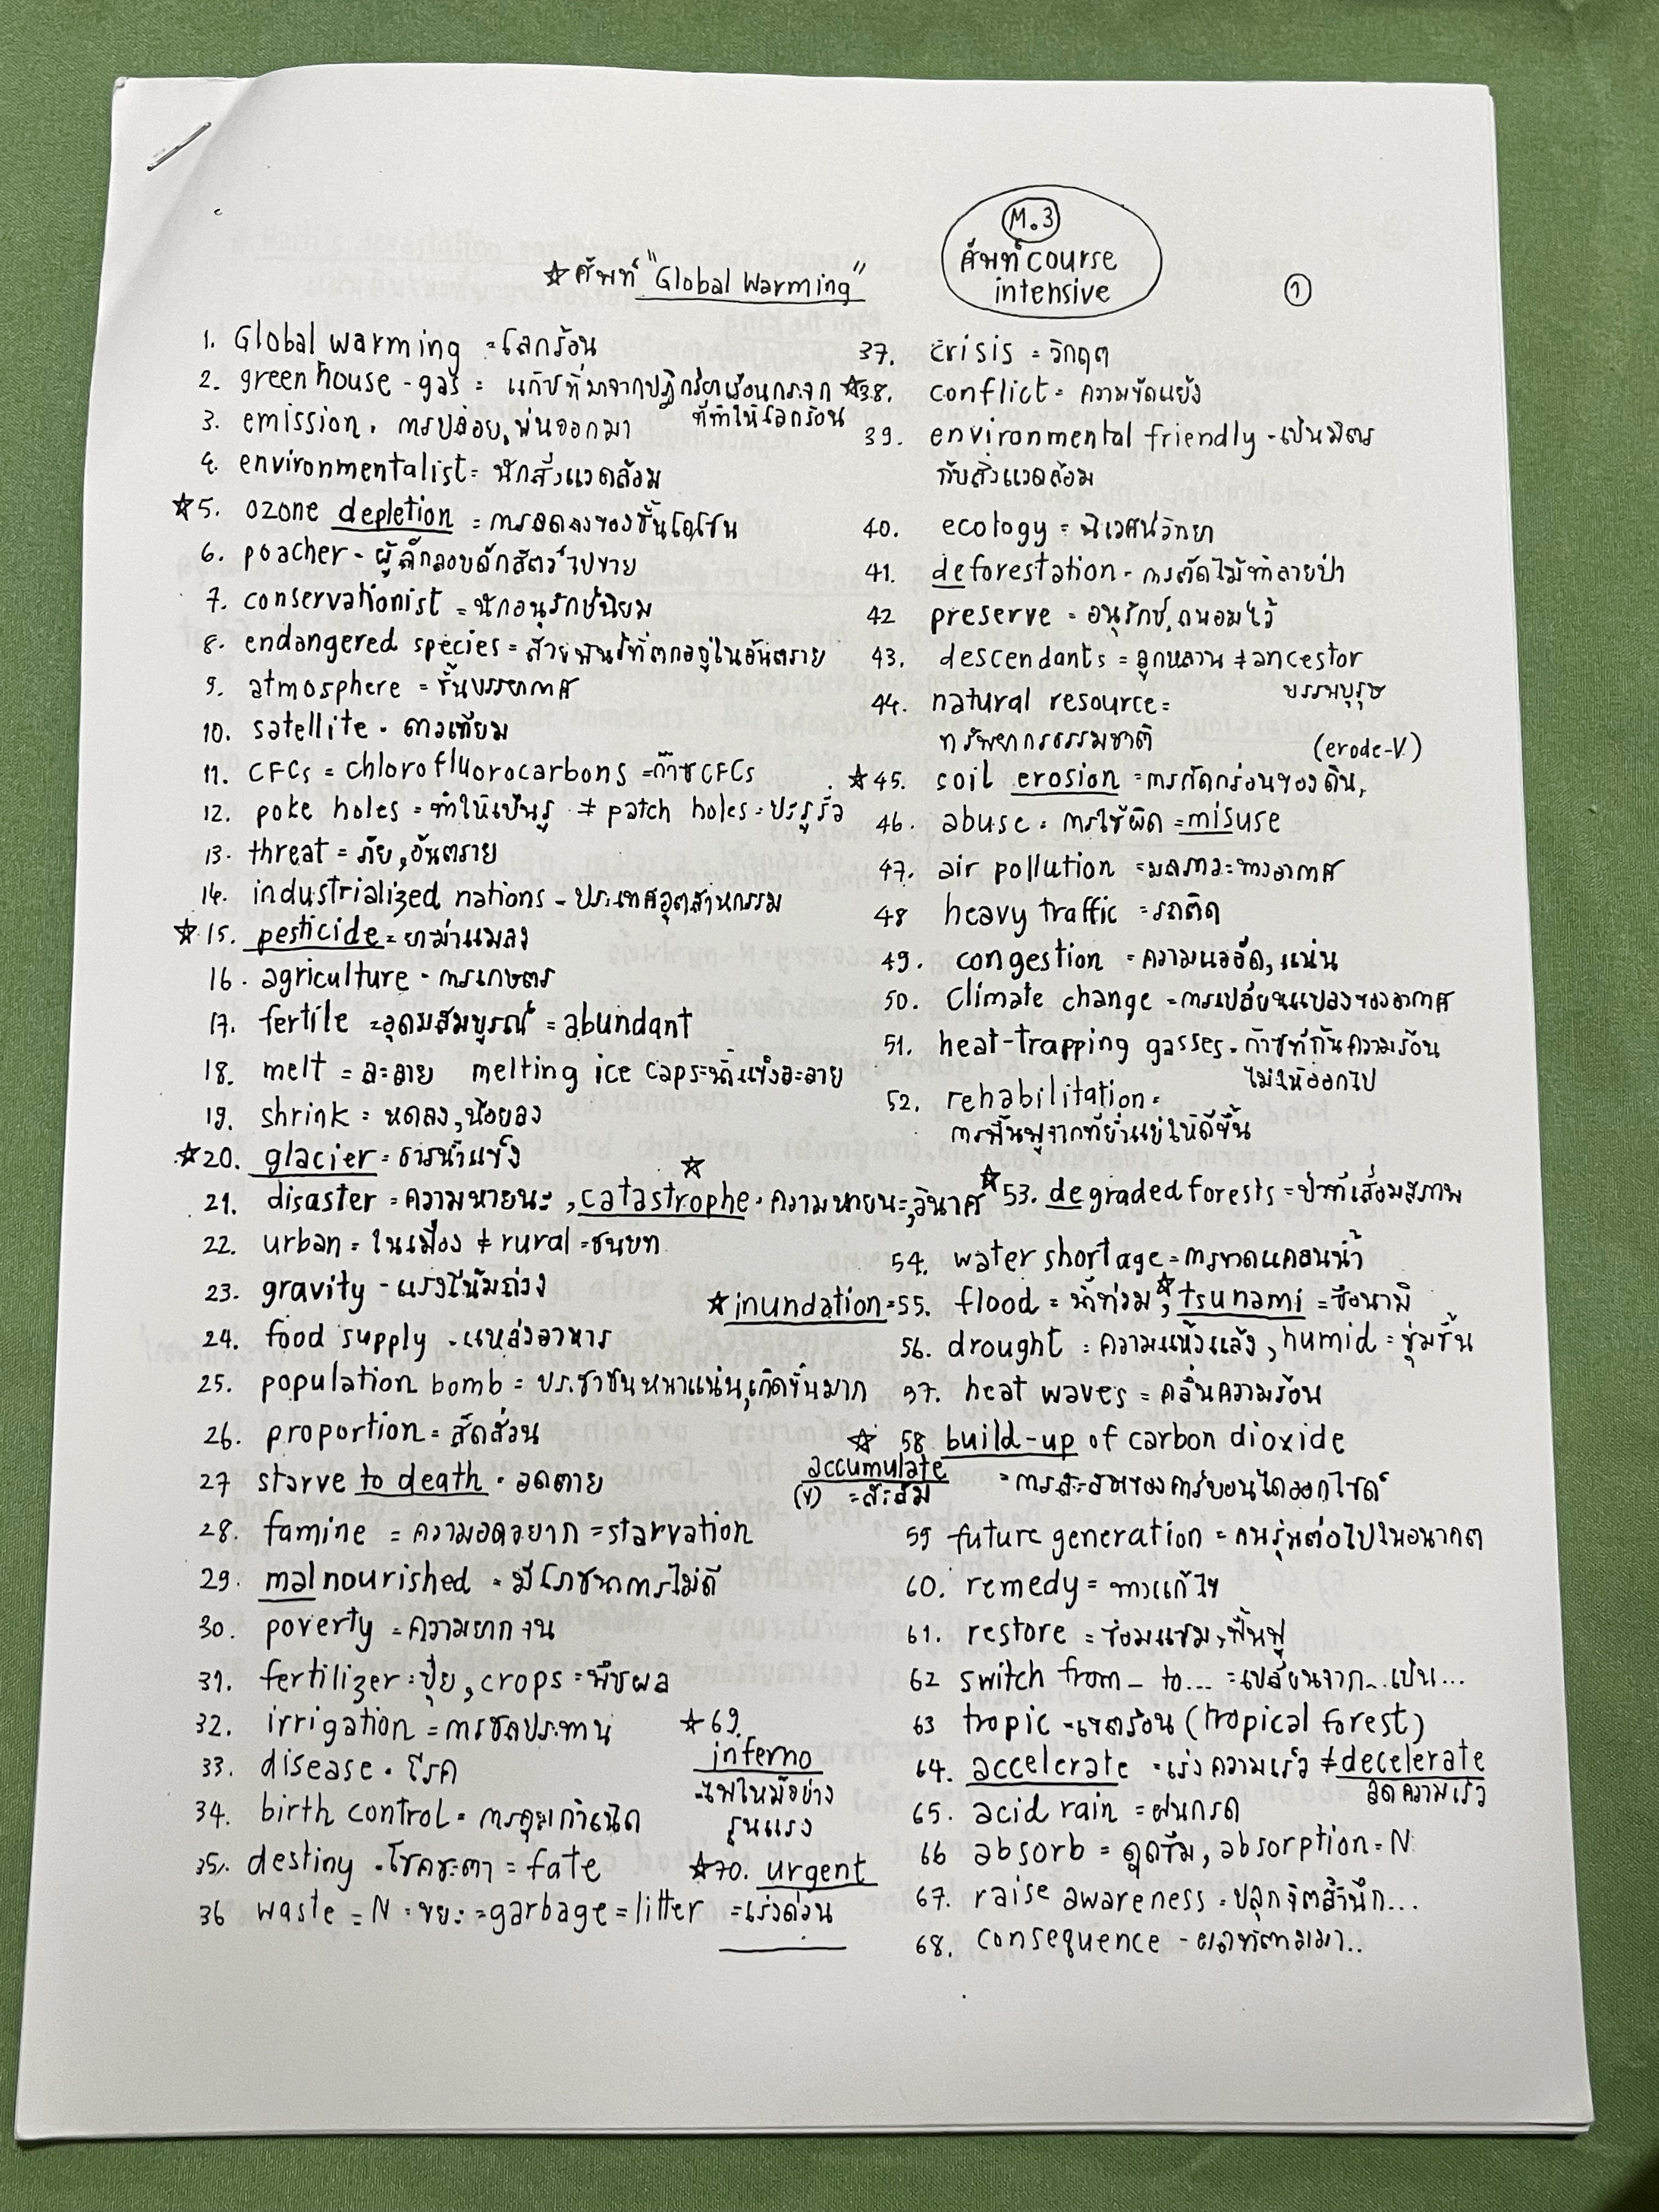 M.3
ศัพท์ course
intensive
☆ ศัพท์ "Global Warming"
1
1. Global warming = โลกร้อน
2. greenhouse - gas = แก๊ซที่มาจากปฏิกริยาเรือนกระจก
ที่ทำให้โลกร้อน
3. emission . การปล่อย, พ่นออกมา
4. environmentalist = นักสิ่งแวดล้อม
☆ 5. ozone depletion = การลดลงของชั้นโอโซน
6. poacher - ผู้ลักลอบดักสัตว์ไปขาย
7. conservationist = นักอนุรักษ์นิยม
8. endangered species = สายพันธ์ที่ตกอยู่ในอันตราย
9. atmosphere = ชั้นบรรยากาศ
10. satellite . ดาวเทียม
11. CFCs = chlorofluorocarbons = ก๊าซ CFCs
12. poke holes = ทำให้เป็นรู ≠ patch holes = ปะรูรั่ว
13. threat = ภัย, อันตราย
14. industrialized nations - ประเทศอุตสาหกรรม
☆ 15. pesticide = ยาฆ่าแมลง
16. agriculture - การเกษตร
17. fertile = อุดมสมบูรณ์ = abundant
18. melt = ละลาย melting ice caps = น้ำแข็งละลาย
19. shrink = หดลง, น้อยลง
☆ 20. glacier = ธารน้ำแข็ง
21. disaster = ความหายนะ , ☆ catastrophe . ความหายนะ, วินาศ
22. urban = ในเมือง ≠ rural = ชนบท
23. gravity - แรงโน้มถ่วง
24. food supply - แหล่งอาหาร
25. population bomb = ประชาชนหนาแน่น, เกิดขึ้นมาก
26. proportion = สัดส่วน
27 starve to death . อดตาย
28. famine = ความอดอยาก = starvation
29. malnourished = มีโภชนาการไม่ดี
30. poverty = ความยากจน
31. fertilizer = ปุ๋ย , crops = พืชผล
32. irrigation = การชลประทาน
33. disease . โรค
34. birth control = การคุมกำเนิด
35. destiny . โชคชะตา = fate
36 waste = N = ขยะ = garbage = litter
☆ 69.
inferno
- ไฟไหม้อย่าง
รุนแรง
☆ 70. urgent
= เร่งด่วน
37. crisis = วิกฤต
☆ 38. conflict = ความขัดแย้ง
39. environmental friendly - เป็นมิตร
กับสิ่งแวดล้อม
40. ecology = นิเวศน์วิทยา
41. deforestation - การตัดไม้ทำลายป่า
42 preserve = อนุรักษ์, ถนอมไว้
43. descendants = ลูกหลาน ≠ ancestor
บรรพบุรุษ
44. natural resource =
ทรัพยากรธรรมชาติ
(erode-V.)
☆ 45. soil erosion = การกัดกร่อนของดิน,
46. abuse = การใช้ผิด = misuse
47. air pollution = มลภาวะทางอากาศ
48 heavy traffic = รถติด
49. congestion = ความแออัด, แน่น
50. Climate change = การเปลี่ยนแปลงของอากาศ
51. heat-trapping gasses . ก๊าซที่กั้นความร้อน
ไม่ให้ออกไป
52. rehabilitation =
การฟื้นฟูจากที่ย่ำแย่ให้ดีขึ้น
☆ 53. degraded forests = ป่าที่เสื่อมสภาพ
54. water shortage = การขาดแคลนน้ำ
☆ inundation = 55. flood = น้ำท่วม, ☆ tsunami = ซึนามิ
56. drought = ความแห้งแล้ง , humid = ชุ่มชื้น
57. heat waves = คลื่นความร้อน
☆ 58. build-up of carbon dioxide
= การสะสมของคาร์บอนไดออกไซด์
accumulate
(v) = สะสม
59 future generation = คนรุ่นต่อไปในอนาคต
60. remedy = ทางแก้ไข
61. restore = ซ่อมแซม, ฟื้นฟู
62 switch from - to... = เปลี่ยนจาก... เป็น...
63 tropic - เขตร้อน (tropical forest)
64. accelerate = เร่งความเร็ว ≠ decelerate
ลดความเร็ว
65. acid rain = ฝนกรด
66 absorb = ดูดซึม, absorption = N
67. raise awareness = ปลุกจิตสำนึก...
68. consequence - ผลที่ตามมา..